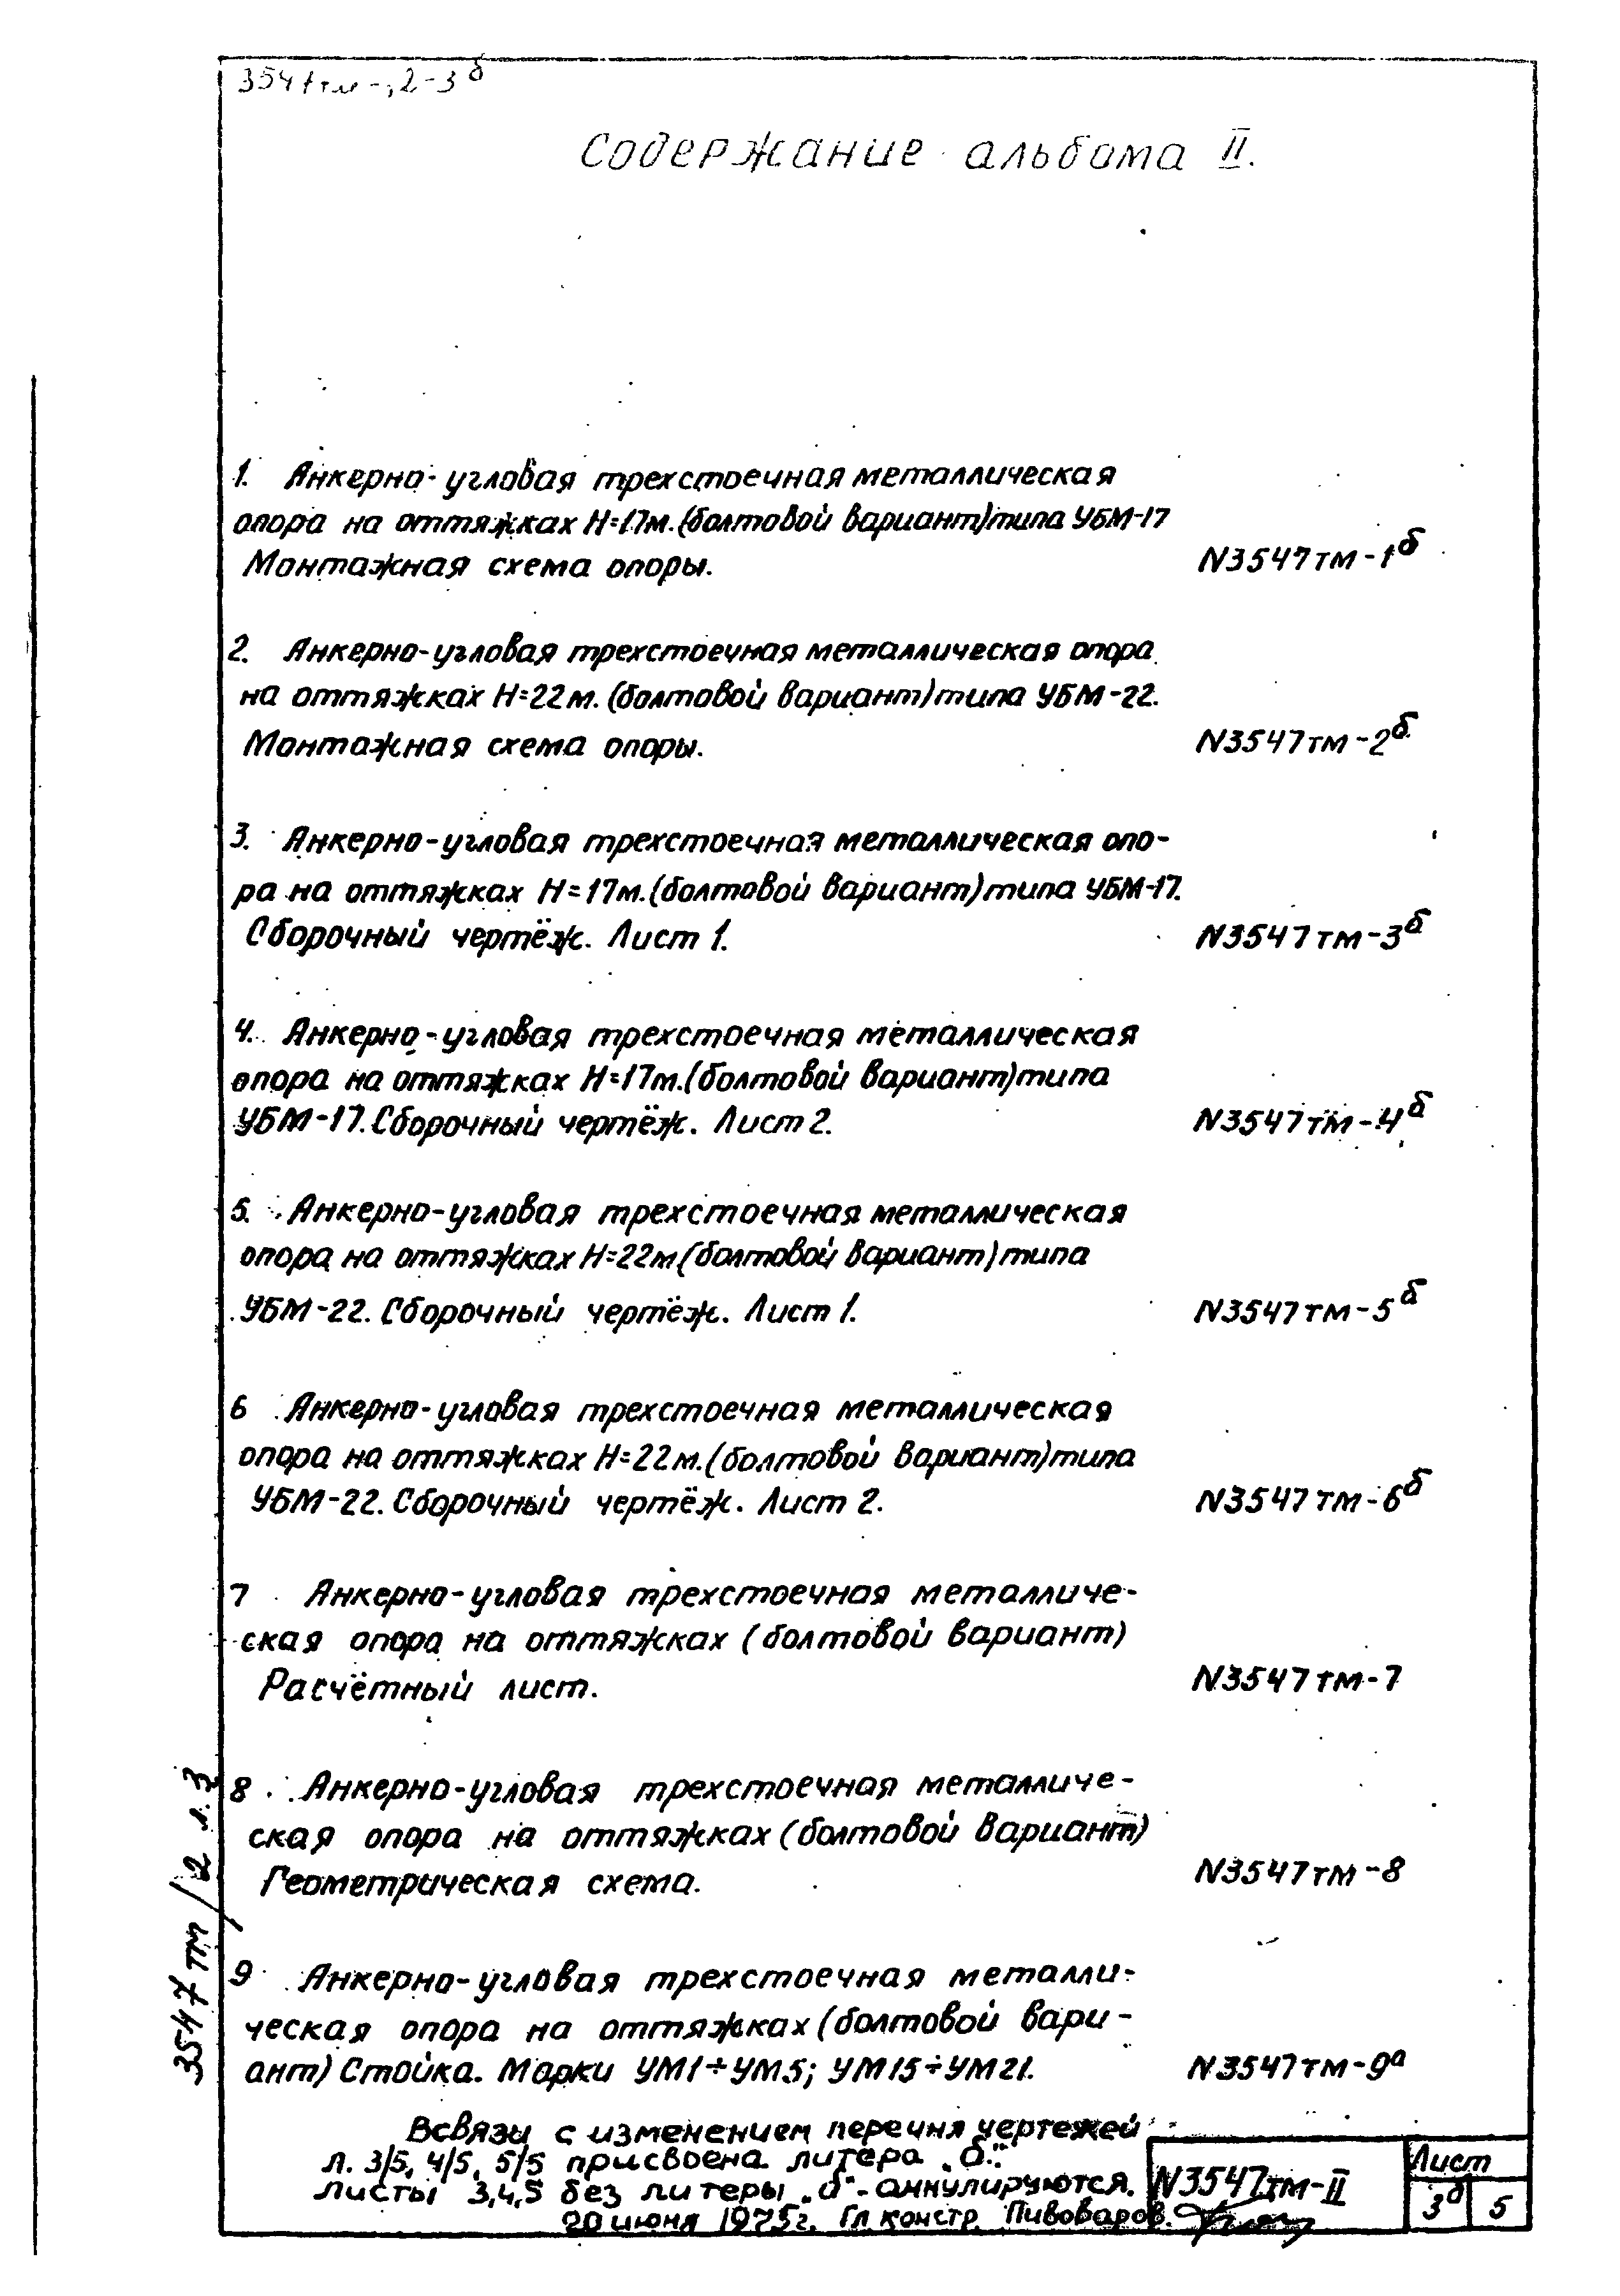 3547тм-12-3б
Содержание альбома II.
1. Анкерно-угловая трехстоечная металлическая
опора на оттяжках Н=17м.(болтовой вариант)типа УБМ-17
Монтажная схема опоры.
N3547тм-1б
2. Анкерно-угловая трехстоечная металлическая опора
на оттяжках Н=22м.(болтовой вариант)типа УБМ-22.
Монтажная схема опоры.
N3547тм-2б
3. Анкерно-угловая трехстоечная металлическая опо-
ра на оттяжках Н=17м.(болтовой вариант)типа УБМ-17.
Сборочный чертёж. Лист 1.
N3547тм-3б
4. Анкерно-угловая трехстоечная металлическая
опора на оттяжках Н=17м.(болтовой вариант)типа
УБМ-17. Сборочный чертёж. Лист 2.
N3547тм-4б
5. Анкерно-угловая трехстоечная металлическая
опора на оттяжках Н=22м(болтовой вариант)типа
УБМ-22. Сборочный чертёж. Лист 1.
N3547тм-5б
6 Анкерно-угловая трехстоечная металлическая
опора на оттяжках Н=22м.(болтовой вариант)типа
УБМ-22. Сборочный чертёж. Лист 2.
N3547тм-6б
7 Анкерно-угловая трехстоечная металличе-
ская опора на оттяжках (болтовой вариант)
Расчётный лист.
N3547тм-7
8. Анкерно-угловая трехстоечная металличе-
ская опора на оттяжках (болтовой вариант)
Геометрическая схема.
N3547тм-8
9 Анкерно-угловая трехстоечная металли-
ческая опора на оттяжках (болтовой вари-
ант) Стойка. Марки УМ1÷УМ5; УМ15÷УМ21.
N3547тм-9а
Всвязи с изменением перечня чертежей
л. 3/5, 4/5, 5/5 присвоена литера „б".
листы 3,4,5 без литеры „б"-аннулируются.
20 июня 1975г. Гл. констр. Пивоваров.
N3547тм-II
Лист
3б 5
3547тм/2 л.3